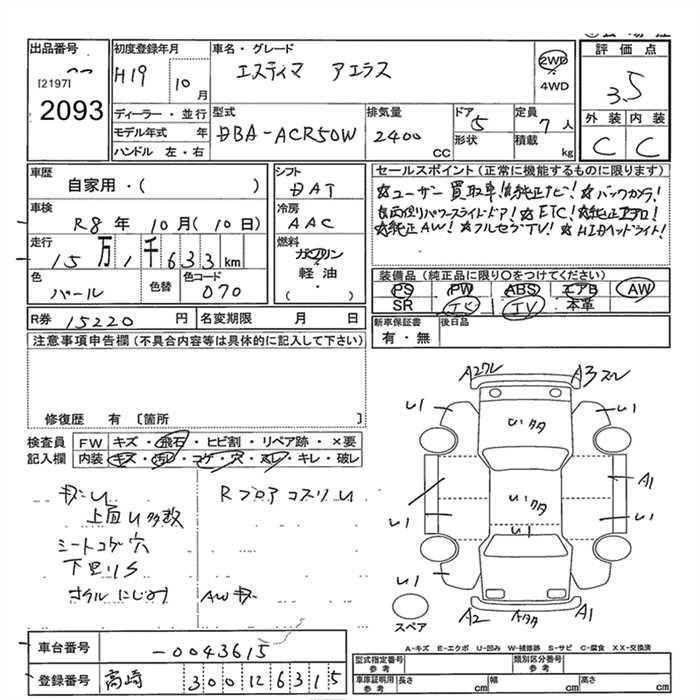 出品番号
[2197]
2093
初度登録年月
H19 10月
車名・グレード
エスティマ アエラス
2WD
4WD
評価点
3.5
外装 内装
C C
ディーラー・並行
モデル年式 年
ハンドル 左・右
型式
DBA-ACR50W
排気量
2400 CC
ドア 5
形状
定員 7人
積載 kg
車歴
自家用・( )
車検
R8年 10月(10日)
走行
15万1千633km
色
パール
色替
色コード
070
シフト
DAT
冷房
AAC
燃料
ガソリン
軽油
・( )
セールスポイント(正常に機能するものに限ります)
☆ユーザー買取車!☆純正ナビ!☆バックカメラ!
☆両側パワースライドドア!☆ETC!☆純正エアロ!
☆純正AW!☆フルセグTV!☆HIDヘッドライト!
装備品(純正品に限り○をつけてください)
PS PW ABS エアB AW
SR TV 本革
新車保証書
有・無
後日品
R券 15220円
名変期限 月 日
注意事項申告欄(不具合内容等は具体的に記入して下さい)
修復歴 有 〔箇所 〕
検査員記入欄
FW キズ・飛石・ヒビ割・リペア跡・×要
内装 キズ・汚レ・コゲ・穴・スレ・キレ・破レ
キズU Rフロアコスリ U
上面U多数
シートコゲ穴
下廻りS
AWキズ
A2ワレ A3スレ
U1 U1
Uタタ
A1
U1 U1
U1
U1 U1
スペア
A2 A1
A-キズ E-エクボ U-凹み W-補修跡 S-サビ C-腐食 XX-交換済
車台番号
-0043615
登録番号
高崎 300 126315
型式指定番号
参考
類別区分番号
参考
車庫証明用
参考
長さ cm
幅 cm
高さ cm